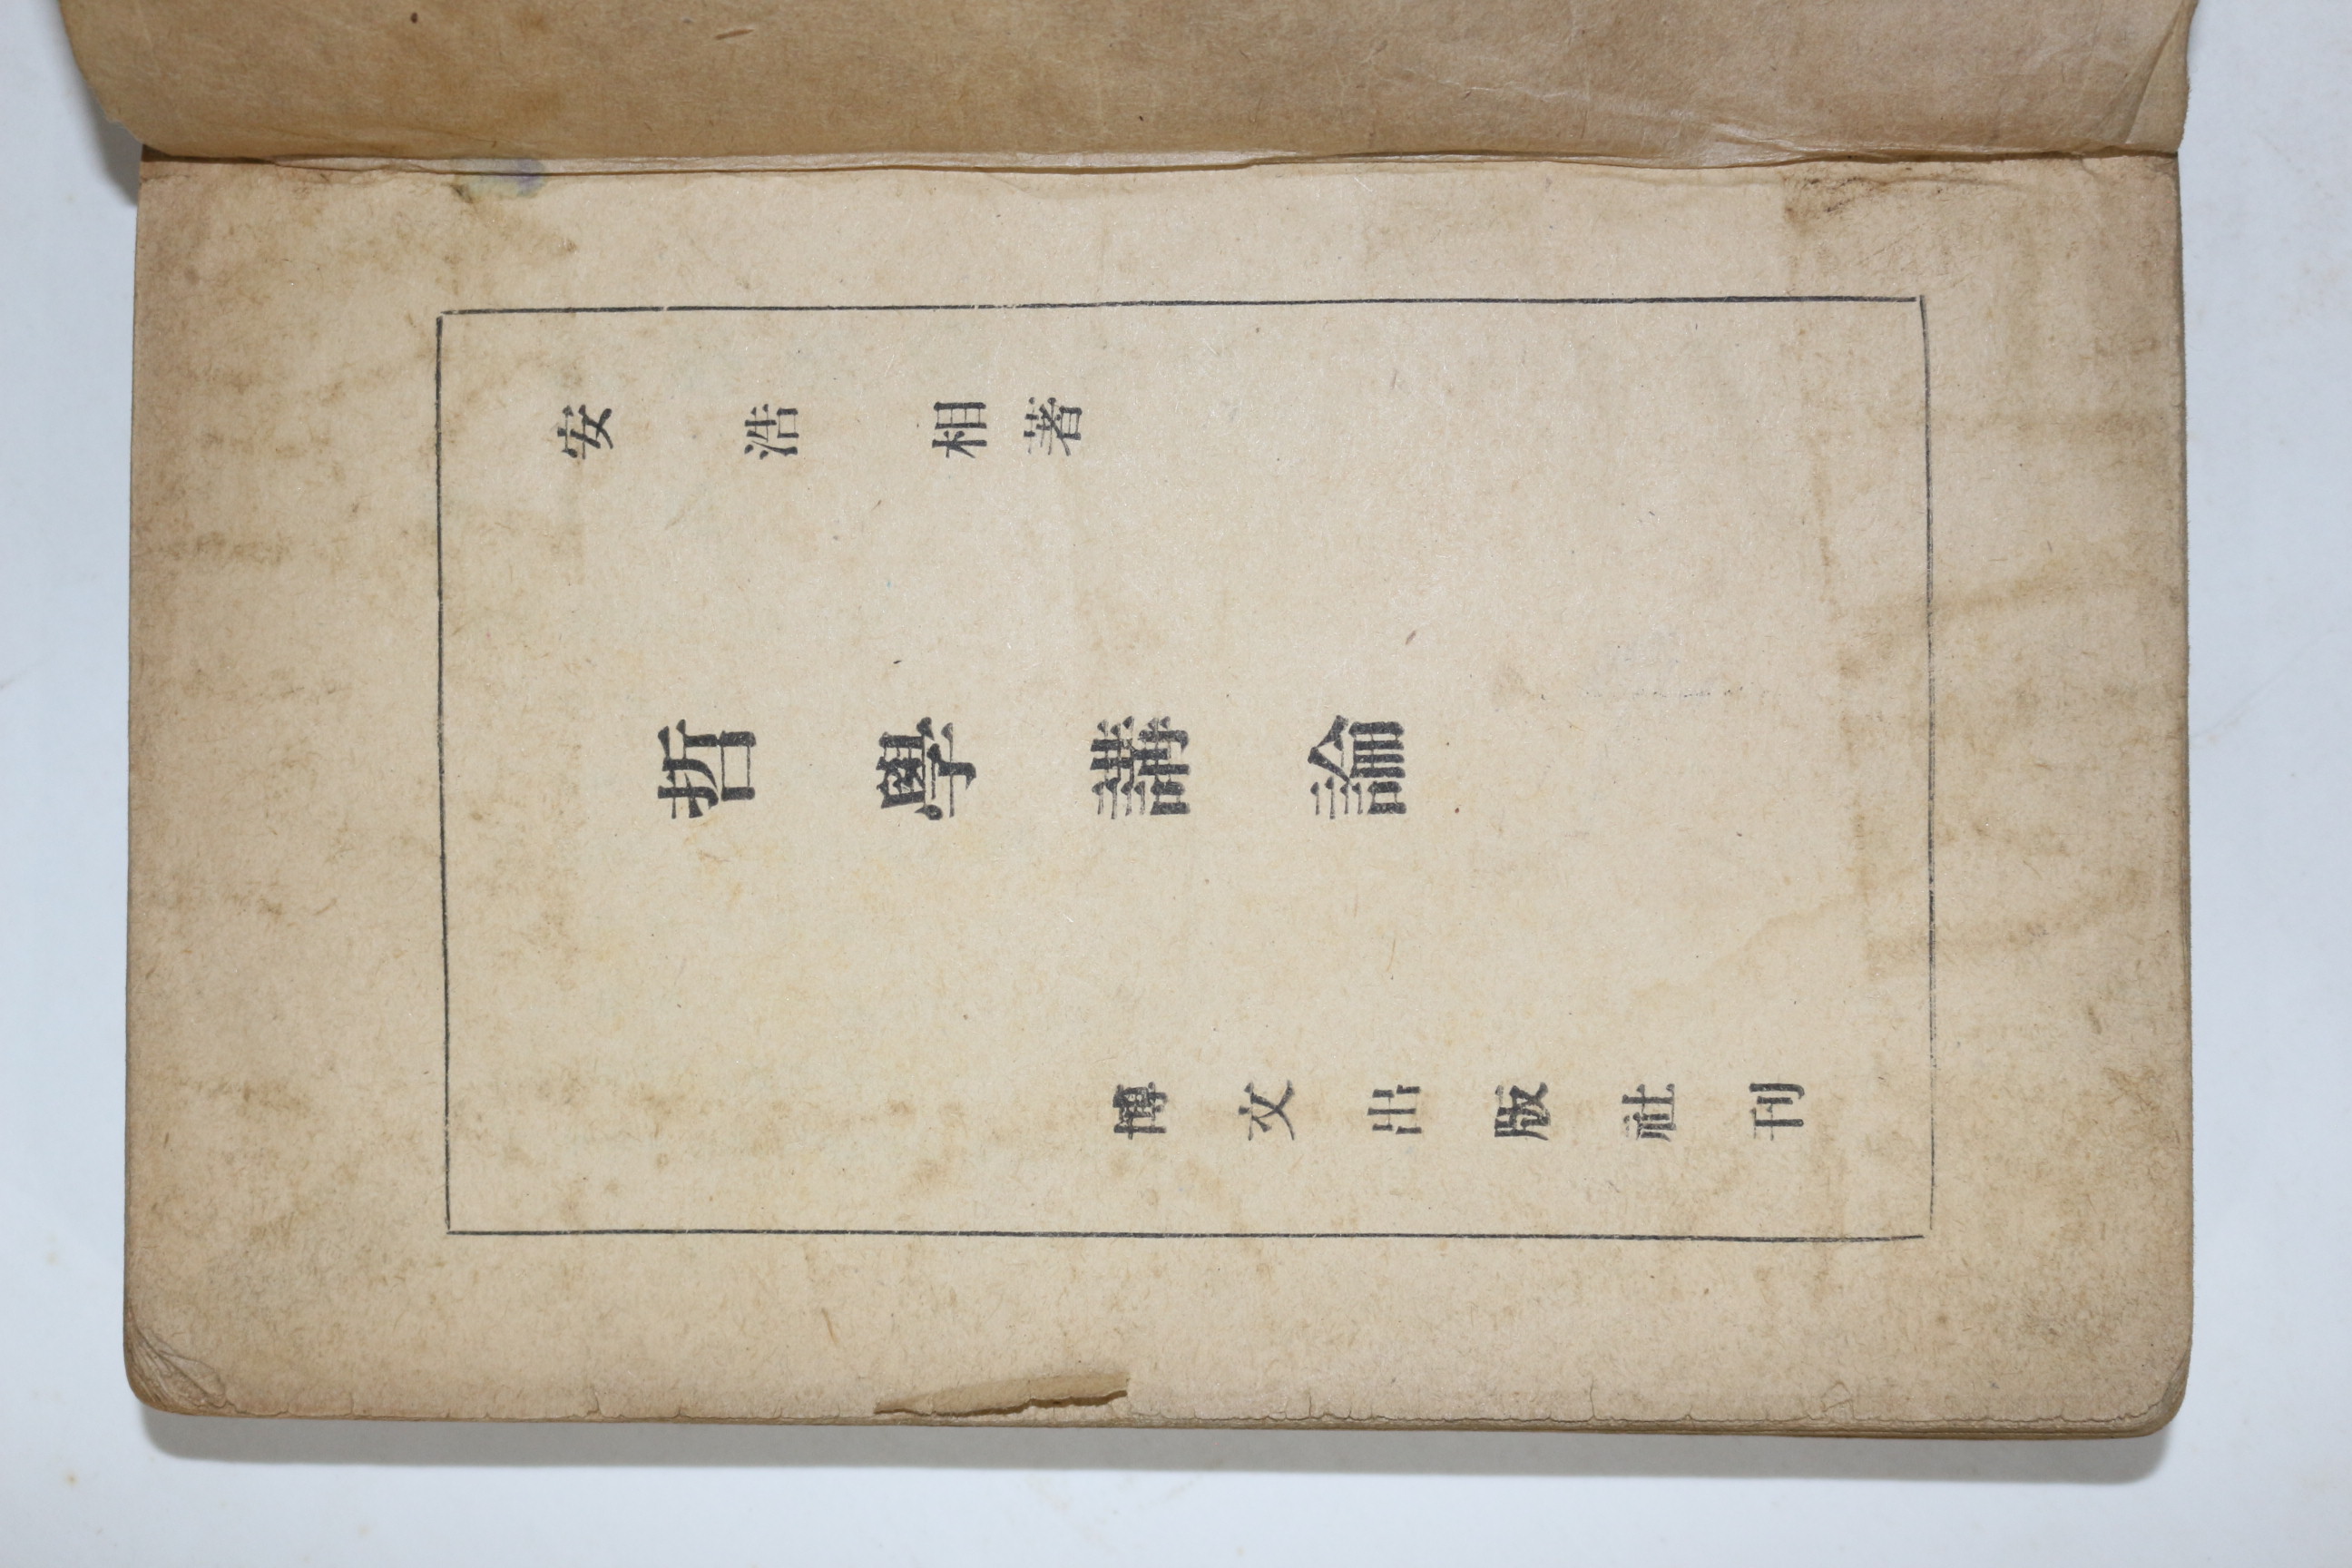 安浩相著
哲學講論
博文出版社刊